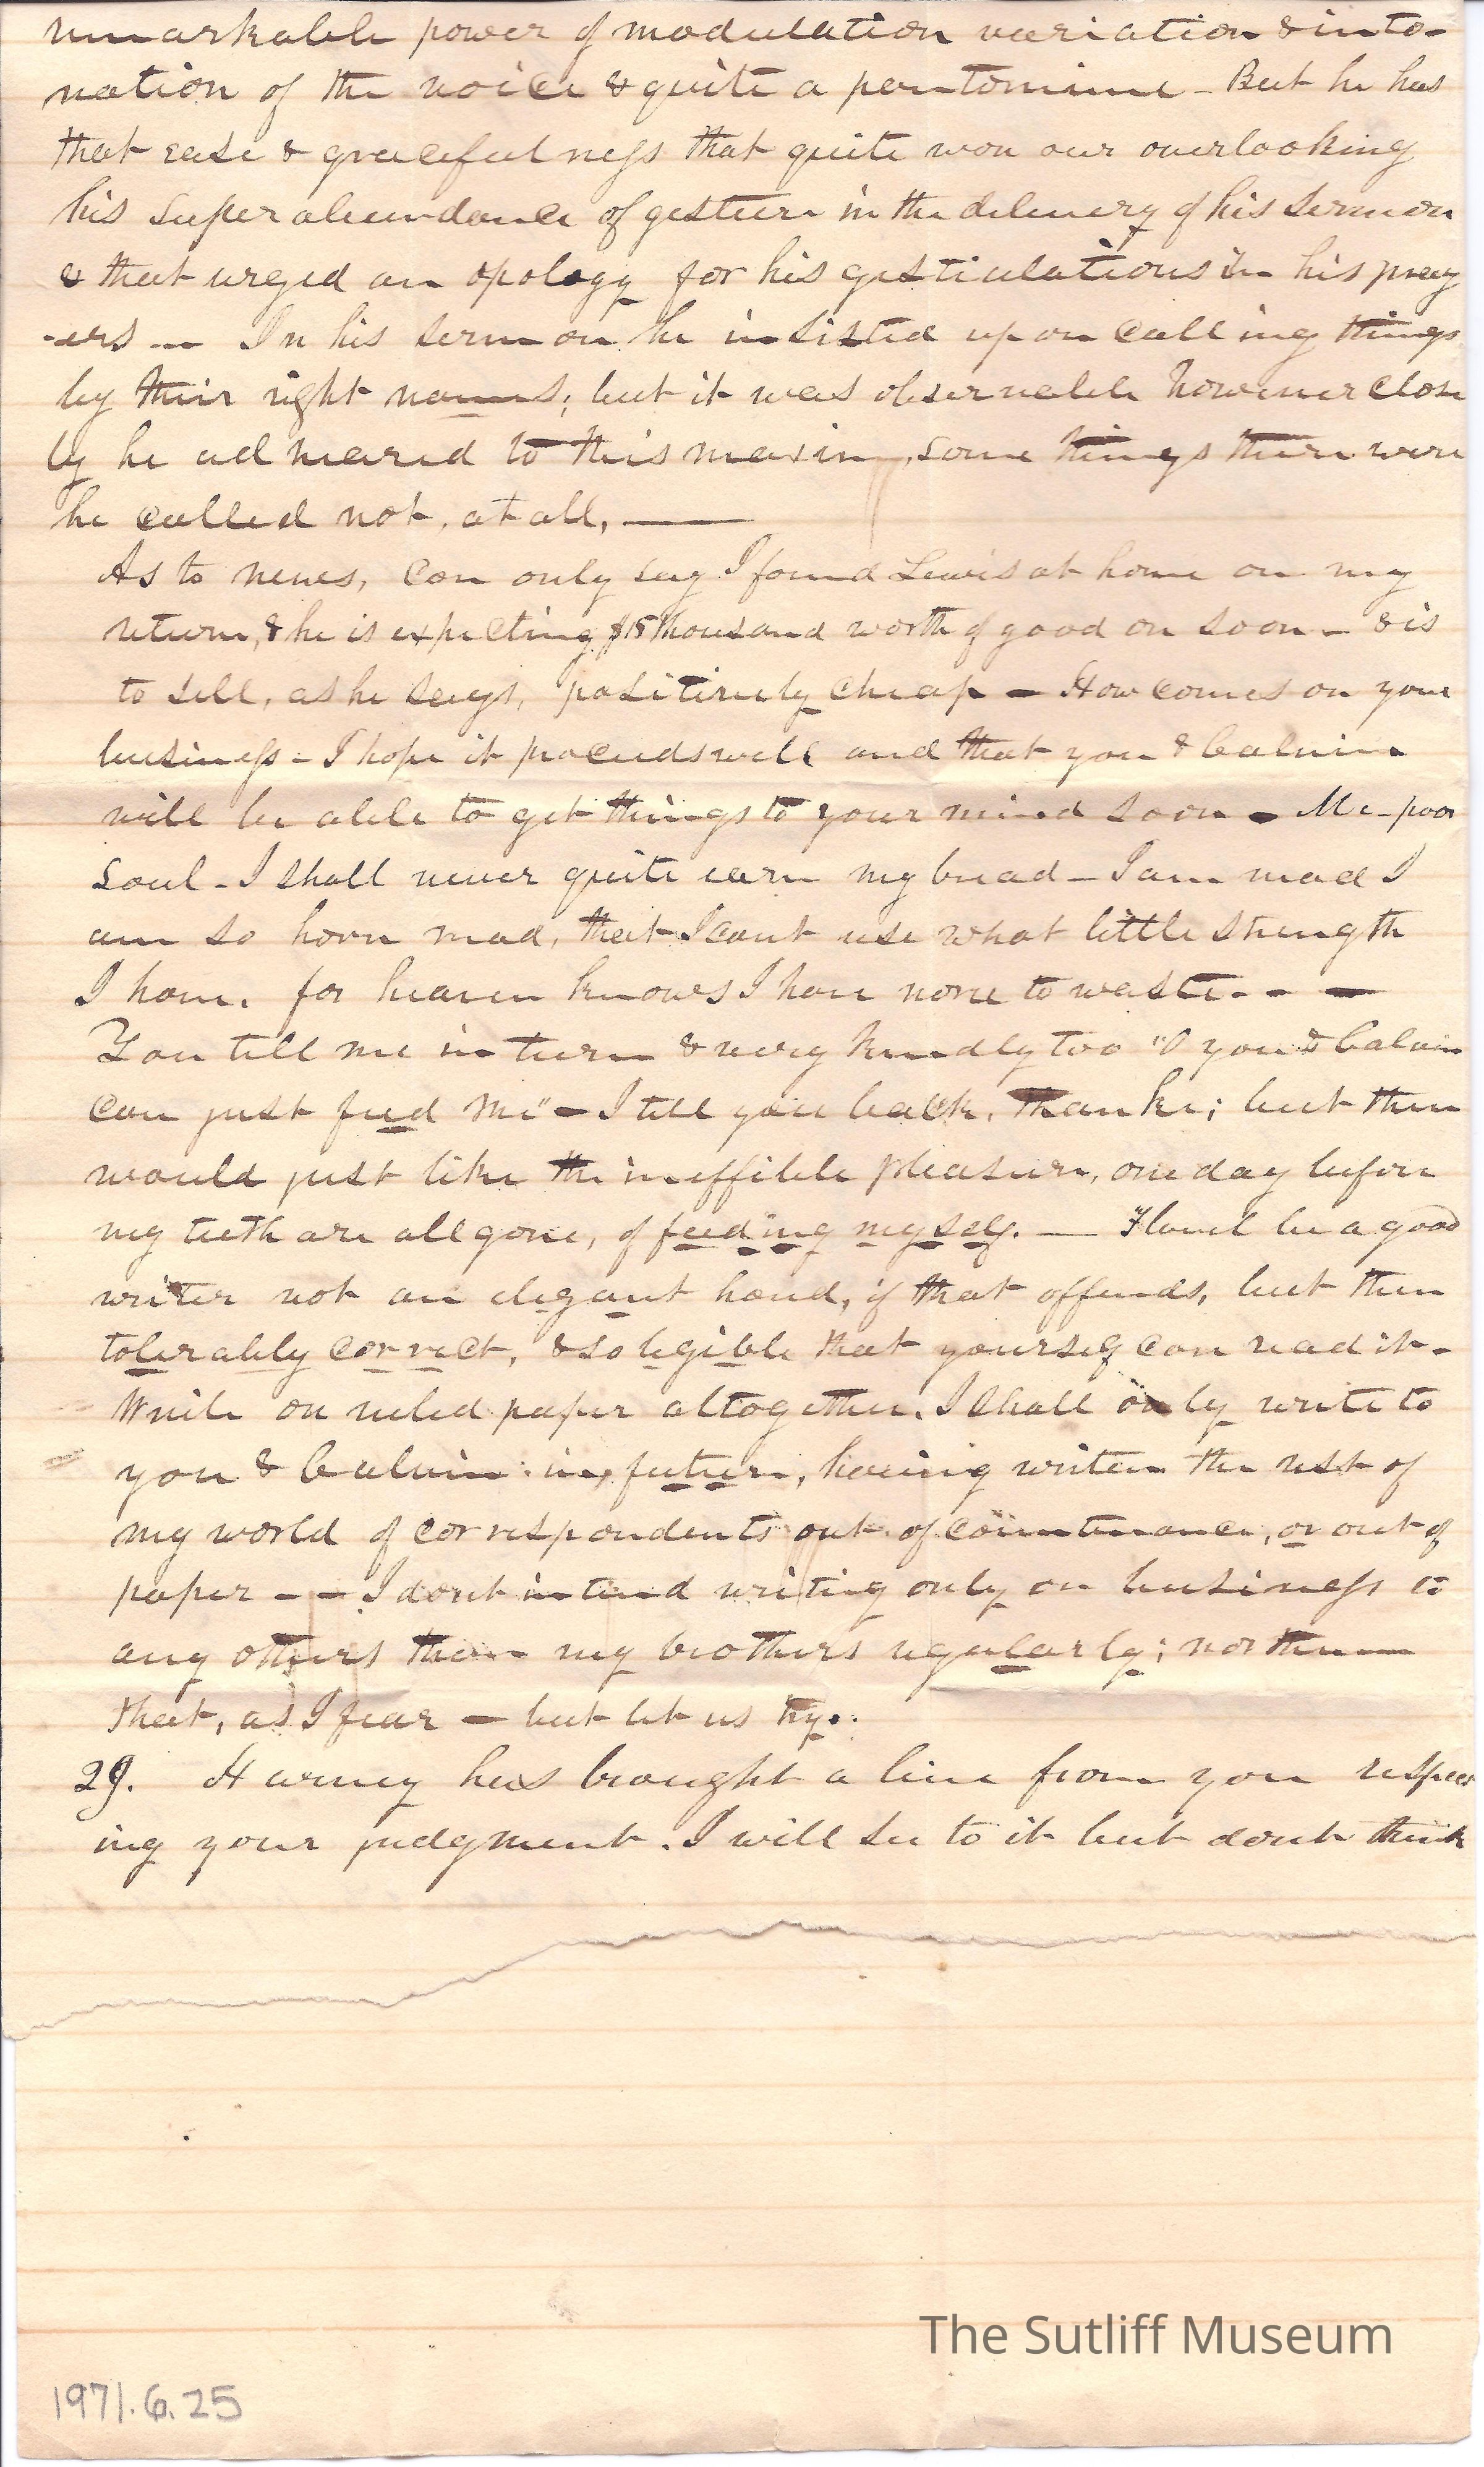 remarkable power of modulation variation & into-
nation of the voice & quite a pantomime - But he has
that ease & gracefulness that quite won our overlooking
his superabundance of gesture in the delivery of his sermon
& that urged an apology for his gesticulations in his pray
-ers -- In his sermon he insisted upon calling things
by their right names; but it was observable however close
ly he adheared to this maxim, some things there were
he called not, at all, ——
As to news, can only say I found Lewis at home on my
return, & he is expecting $15 thousand worth of good on soon - & is
to sell, as he says, positively cheap - How comes on your
business - I hope it proceeds well and that you & Calvin
will be able to get things to your mind soon - Me - poor
soul - I shall never quite earn my bread - I am mad I
am so horn mad, that I cant use what little strength
I have. for heaven knows I have none to waste - - -
You tell me in turn & very kindly too "O you & Calvin
can just feed me" - I tell you back, thanke; but then
would just like the ineffible pleasure, one day before
my teeth are all gone, of feeding myself. — I low'd be a good
writer not an elegant hand, if that offends, but then
tolerably correct, & so legible that yourself can read it -
Write on ruled paper altogether. I shall only write to
you & Calvin in future, having writen the rest of
my world of correspondents out of countenance, or out of
paper - - I dont intend writing only on business to
any others than my brothers regularly; nor them
that, as I fear - but let us try.
29. Harvey has brought a line from you respect
ing your judgment. I will see to it but dont think
The Sutliff Museum
1971.6.25